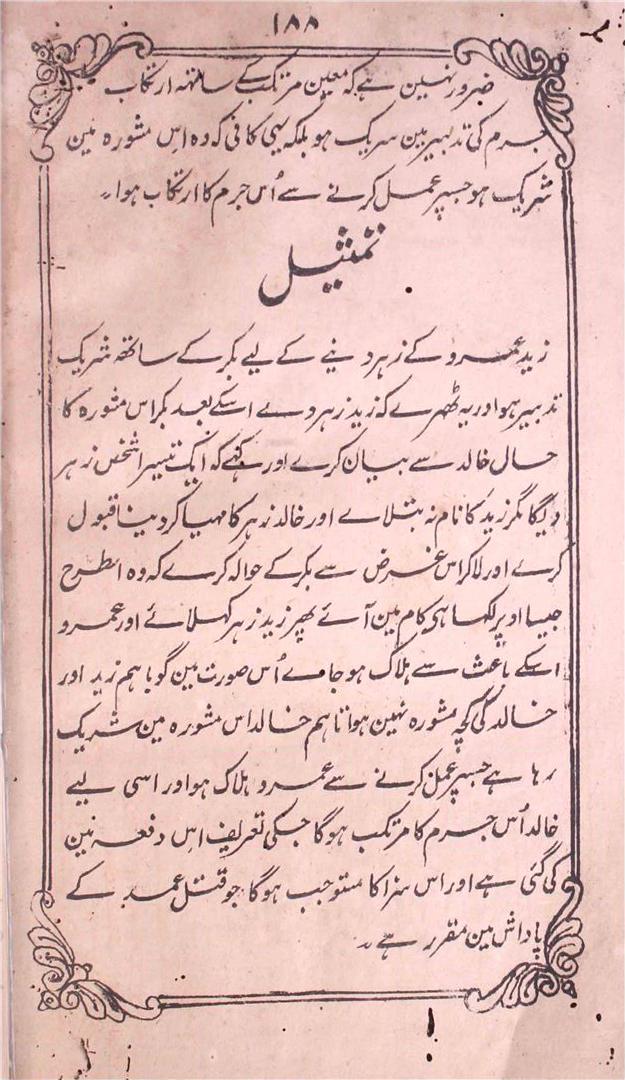 ۱۸۸
ضرور نہین ہے کہ معین مرتکب کے ساتھہ ارتکاب
جرم کی تدبیر مین شریک ہو بلکہ یہی کافی کہ وہ اِس مشورہ مین
شریک ہو جسپر عمل کرنے سے اُس جرم کا ارتکاب ہوا۔
تمثیل
زید عمرو کے زہر دینے کے لیے بکر کے ساتھ شریک
تدبیر ہو اور یہ ٹھہرے کہ زید زہر دے اسکے بعد بکر اس مشورہ کا
حال خالد سے بیان کرے اور کہے کہ ایک تیسرا شخص زہر
دیگا مگر زید کا نام نہ بتلاے اور خالد زہر کا مہیا کر دینا قبول
کرے اور لا کر اس غرض سے بکر کے حوالہ کرے کہ وہ اسطرح
جیسا اوپر لکھا ہی کام مین آئے پھر زید زہر کہلائے اور عمرو
اسکے باعث سے ہلاک ہو جاے اُس صورت مین گو باہم زید اور
خالد کی کچہ مشورہ نہین ہوا تاہم خالد اس مشورہ مین شریک
رہا ہے جسپر عمل کرنے سے عمرو ہلاک ہوا اور اسی لیے
خالد اُس جرم کا مرتکب ہوگا جسکی تعریف اِس دفعہ مین
کی گئی ہے اور اس سزا کا مستوجب ہوگا جو قتل عمد کے
پاداش مین مقرر ہے۔